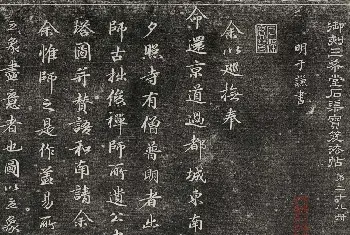 御刻三希堂石渠寶笈法帖
明于謙書
余以巡撫奉
命還京道過都城東南
夕照寺有僧普明者出
師古拙俊禪師所遺公
塔圖并賛語和南請余
余惟師之是作蓋易所
立象盡意者也圖以立象